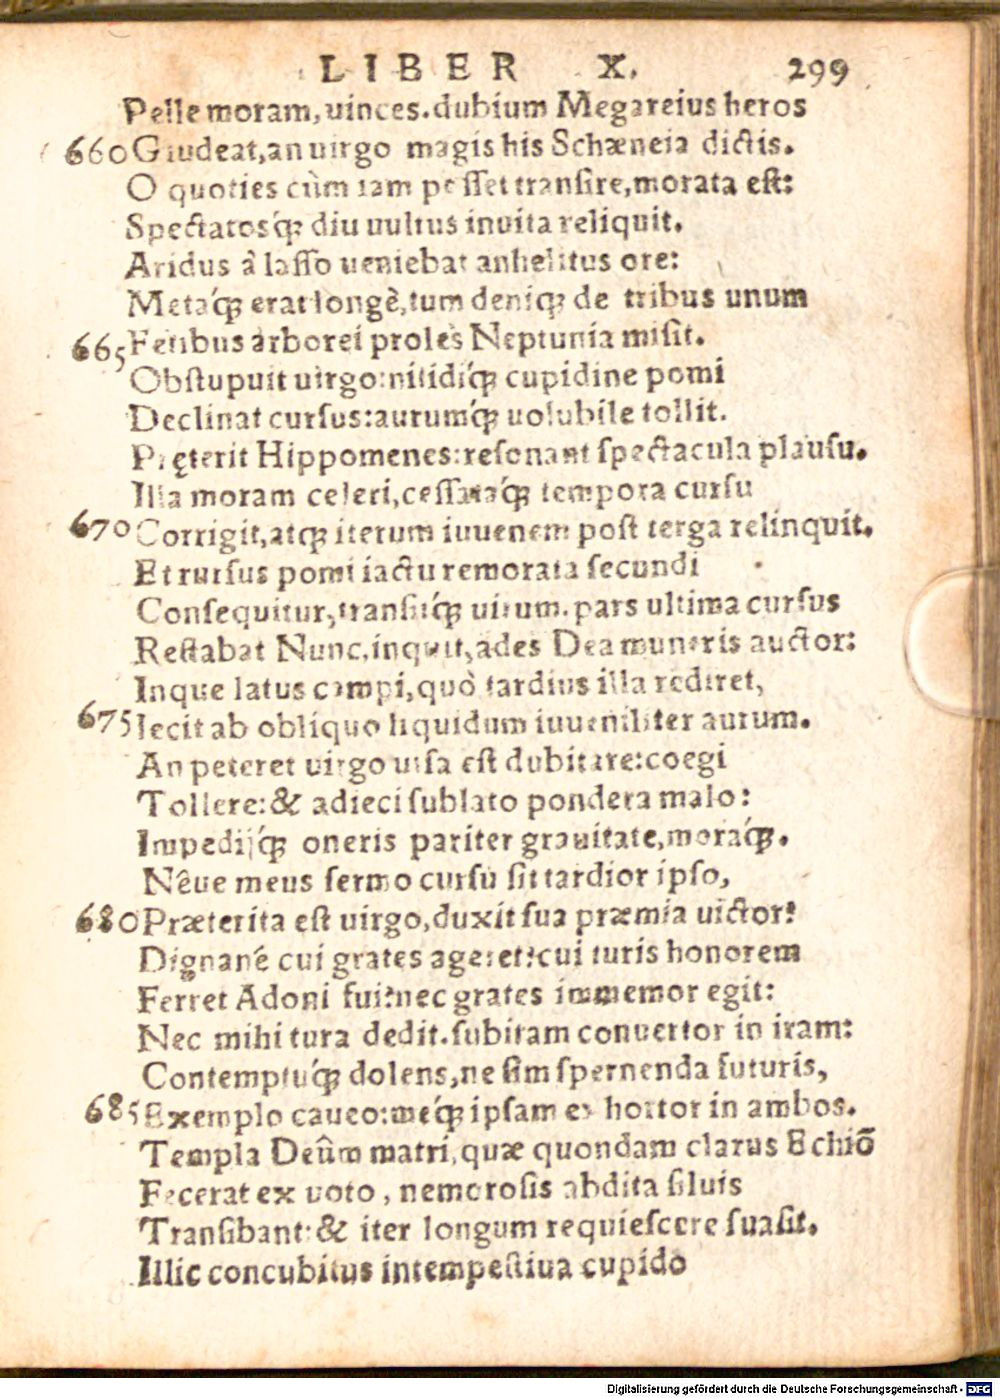 LIBER X. 299
Pelle moram, uinces. dubium Megareius heros
660 Gaudeat, an uirgo magis his Schæneia dictis.
O quoties cùm iam posset transire, morata est:
Spectatosq́; diu uultus inuita reliquit.
Aridus â lasso ueniebat anhelitus ore:
Metaq́; erat longè, tum deniq; de tribus unum
665 Fetibus arborei proles Neptunia misit.
Obstupuit uirgo: nitidiq́; cupidine pomi
Declinat cursus: aurumq́; uolubile tollit.
Pręterit Hippomenes: resonant spectacula plausu.
Illa moram celeri, cessataq́; tempora cursu
670 Corrigit, atq; iterum iuuenem post terga relinquit.
Et rursus pomi iactu remorata secundi
Consequitur, transitq́; uirum. pars ultima cursus
Restabat Nunc, inquit, ades Dea muneris auctor:
Inque latus campi, quò tardius illa rediret,
675 Iecit ab obliquo liquidum iuueniliter aurum.
An peteret uirgo uisa est dubitare: coegi
Tollere: & adieci sublato pondera malo:
Impedijq́; oneris pariter grauitate, moraq́;.
Nêue meus sermo cursu sit tardior ipso,
680 Præterita est uirgo, duxit sua præmia uictor:
Dignané cui grates ageret: cui turis honorem
Ferret Adoni fui? nec grates immemor egit:
Nec mihi tura dedit. subitam conuertor in iram:
Contemptuq́; dolens, ne sim spernenda futuris,
685 Exemplo caueo: meq́; ipsam ex hortor in ambos.
Templa Deûm matri, quæ quondam clarus Echiō
Fecerat ex uoto, nemorosis abdita siluis
Transibant: & iter longum requiescere suasit.
Illic concubitus intempestiua cupido
Digitalisierung gefördert durch die Deutsche Forschungsgemeinschaft - DFG